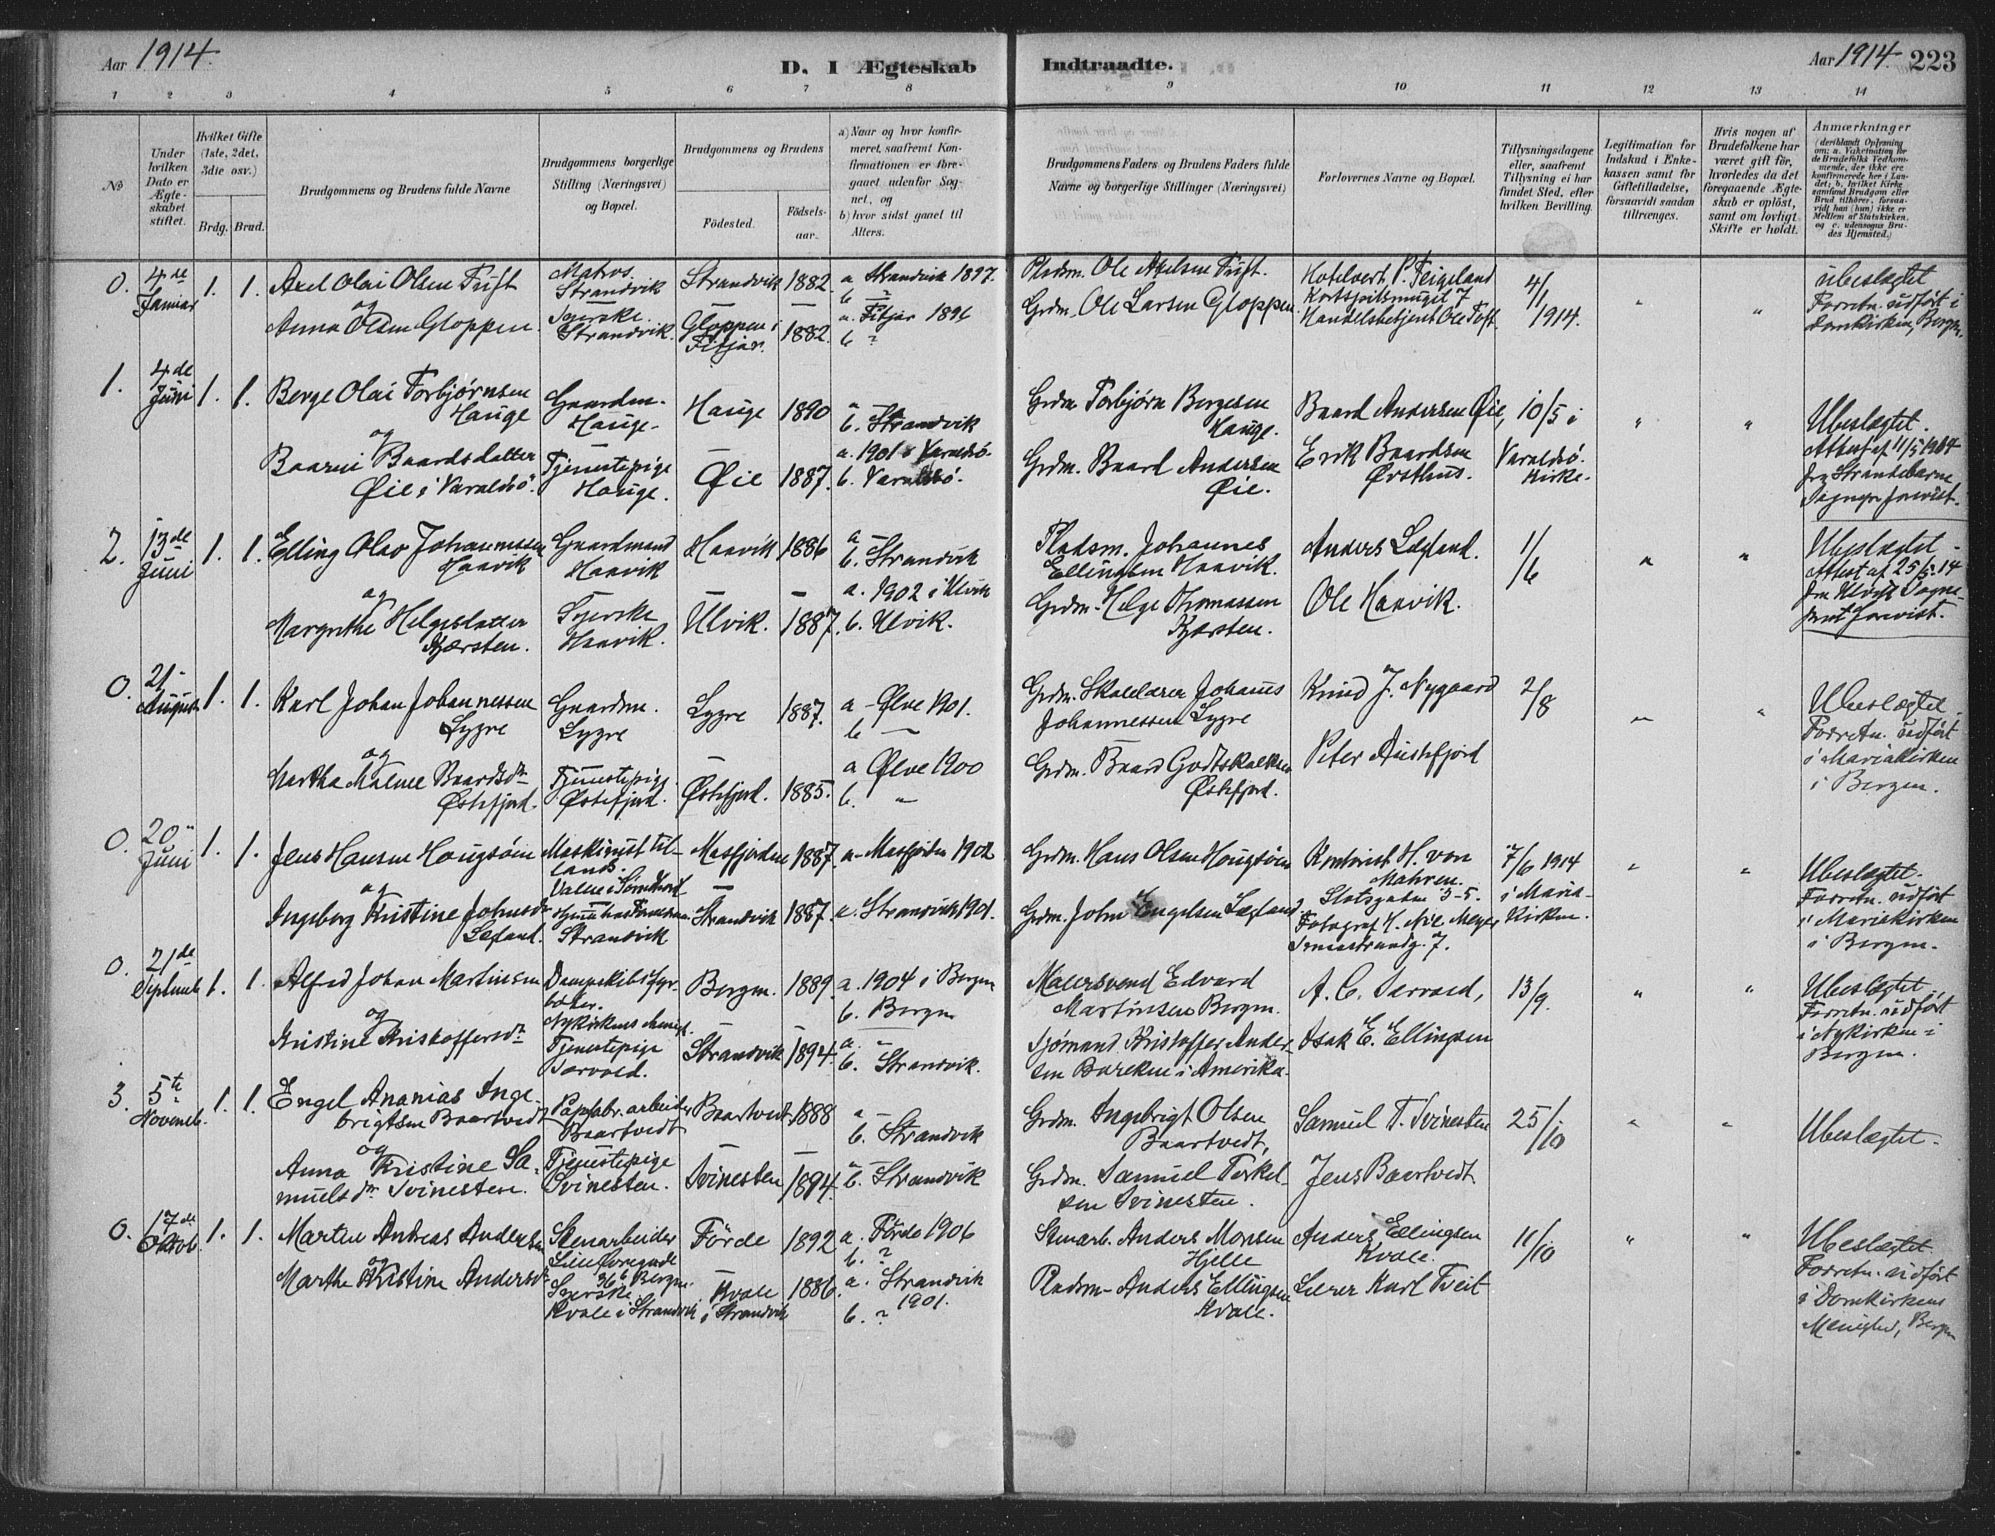 Aar 1914.
D. I Ægteskab Indtraadte.
Aar 1914 223
1 2 3 4 5 6 7 8 9 10 11 12 13 14
No
Under hvilken Dato er Ægteskabet stiftet.
Hvilket Gifte (1ste, 2det, 3die osv.)
Brdg. Brud.
Brudgommens og Brudens fulde Navne
Brudgommens borgerlige Stilling (Næringsvei) og Bopæl.
Brudgommens og Brudens
Födested. Födselsaar.
a) Naar og hvor konfirmeret, saafremt Konfirmationen er foregaaet udenfor Sognet, og
b) hvor sidst gaaet til Alters.
Brudgommens Faders og Brudens Faders fulde Navne og borgerlige Stillinger (Næringsvei)
Forlovernes Navne og Bopæl.
Tillysningsdagene eller, saafremt Tillysning ei har fundet Sted, efter hvilken Bevilling.
Legitimation for Indskud i Enkekassen samt for Giftetilladelse, forsaavidt saadan tiltrænges.
Hvis nogen af Brudefolkene har været gift för, hvorledes da det foregaaende Ægteskab er oplöst, samt om lovligt Skifte er holdt.
Anmærkninger
(deriblandt Oplysning om: a. Vaksination for de Brudefolks Vedkommende, der ikke ere konfirmerede her i Landet; b. hvilket Kirkesamfund Brudgom eller Brud tilhörer, forsaavidt han (hun) ikke er Medlem af Statskirken, og c. udensogns Brudes Hjemsted.)
0. 4de Januar 1. 1.
Axel Olai Olsen Tuft
og
Anna Olsen Gloppen.
Matros Strandvik
Syerske Strandvik.
Strandvik 1882.
Gloppen i Fitjar. 1882.
a Strandvik 1897.
b ?
a. Fitjar 1896
b ?
Pladsm. Ole Axelsen Tuft.
Grdm. Ole Larsen Gloppen
Hotelvert P. Teigeland
Handelsbetjent Ole Toft
4/1 1914.
" "
Ubeslægtet
Forretn. udført i
Domkirken, Bergen.
1. 4de Juni 1. 1.
Berge Olai Torbjørnsen
Hauge
og
Baardsdatter
Øie i Varaldsö.
Gaardm. Hauge.
Tjenestepige Hauge.
Hauge 1890
Øie 1887.
a –
b. Strandvik
a. 1901 i Varaldsö.
b. Varaldsö.
Grdm. Torbjörn Bergesen
Hauge.
Grdm. Baard Andersen
Øie.
Baard Andersen Øie,
Erik Baardsen
10/5 i
Varaldsö.
Kirke.
" "
Ubeslægtet.
Attest af 11/5 1914
fra Strandebarm
2. 13de Juni 1. 1.
Elling Olav Johannessen
Haavik
og
Margrethe Helgesdatter
Kjærsten.
Gaardmand
Haavik
Syerske
Haavik.
Haavik 1886
Ulvik. 1887.
a –
b. Strandvik
a. 1902 i Ulvik
b. Ulvik.
Pladsm. Johannes
Ellingsen Haavik.
Grdm. Helge Thomassen
Kjærsten.
Anders Lægland.
Ole Haavik.
1/6
" "
Ubeslægtet –
Attest af 25/5 14
fra Ulvik Sogne-
0. 21- August 1. 1.
Karl Johan Johannessen
Lygre
og
Martha Malene Baardsdr
Østefjord.
Gaardm.
Lygre
Tjenestepige
Østefjord.
Lygre 1887.
Østefjord. 1885.
a – Ølve 1901.
b –
a Ølve 1900
b. "
Grdm. Skolelærer Johannes
Johannessen Lygre
Grdm. Baard Godtskalksen
Østefjord.
Knud J. Nygaard
Peter Austefjord
2/8
" "
Ubeslægtet –
Forretn. udført
i Mariakirken
i Bergen.
0. 20" Juni 1. 1.
Jens Hansen Hougsöen
og
Ingeborg Kristine Johnsdr
Lægland.
Maskinist til-
lands.
Strandvik
Masfjorden 1887.
Strandvik 1887.
a – Masfjorden 1902
a. Strandvik 1901.
Grdm. Hans Olsen Hougsöen
Grdm. John Engelsen Lægland
Kontorist H. von
Mahren.
Statsgaden 35.
Fotograf H. Meyer
7/6 1914
i Maria-
Kirken.
" "
Ubeslægtet.
Forretn. udført
i Mariakirken
i Bergen.
0. 21de Septemb 1. 1.
Alfred Johan Martinsen
og
Kristine Kristoffersdr
Dampskibsfyr-
böter.
Tjenestepige
Bergen. 1889.
Strandvik 1894.
a. 1904 i Bergen
b. Bergen
a. "
b. Strandvik.
Malersvend Edvard
Martinsen Bergen.
Sjømand Kristoffer Ander-
sen i Amerika.
A. C. Sarvold,
Isak E. Ellingsen
13/9.
" "
Ubeslægtet.
Forretn. udført
i Nykirken i
Bergen.
3. 5te Novemb. 1. 1.
Engel Ananias Inge-
brigtsen Baartvedt
og
Anna Kristine Sa-
muelsdr Svinesten.
Papfabr. arbeider
Baartvedt
Tjenestepige
Svinesten.
Baartvedt 1888
Svinesten 1894.
a –
b. Strandvik
a –
b. Strandvik
Grdm. Ingebrigt Olsen
Baartvedt,
Grdm. Samuel Torkel-
sen Svinesten.
Samuel T. Svinesten
Jens Baartvedt
25/10
" "
Ubeslægtet.
0. 17de Oktob. 1. 1.
Martin Andreas Andersen
og
Marthe Kristine Andersdr
Stenarbeider
Bergen
Syerske.
Kvale i Strandvik
Förde 1892
Kvale
i Strandvik 1886.
a. Förde 1906
b. ?
a. Strandvik
1901.
b. ?
Stenarb. Anders Monsen
Hjelle
Pladsm– Anders Ellingsen
Kvale.
Anders Ellingsen
Kvale.
Lærer Karl Tveit
11/10
" "
Ubeslægtet.
Forretn. udført
i Domkirkens
Menighed, Bergen